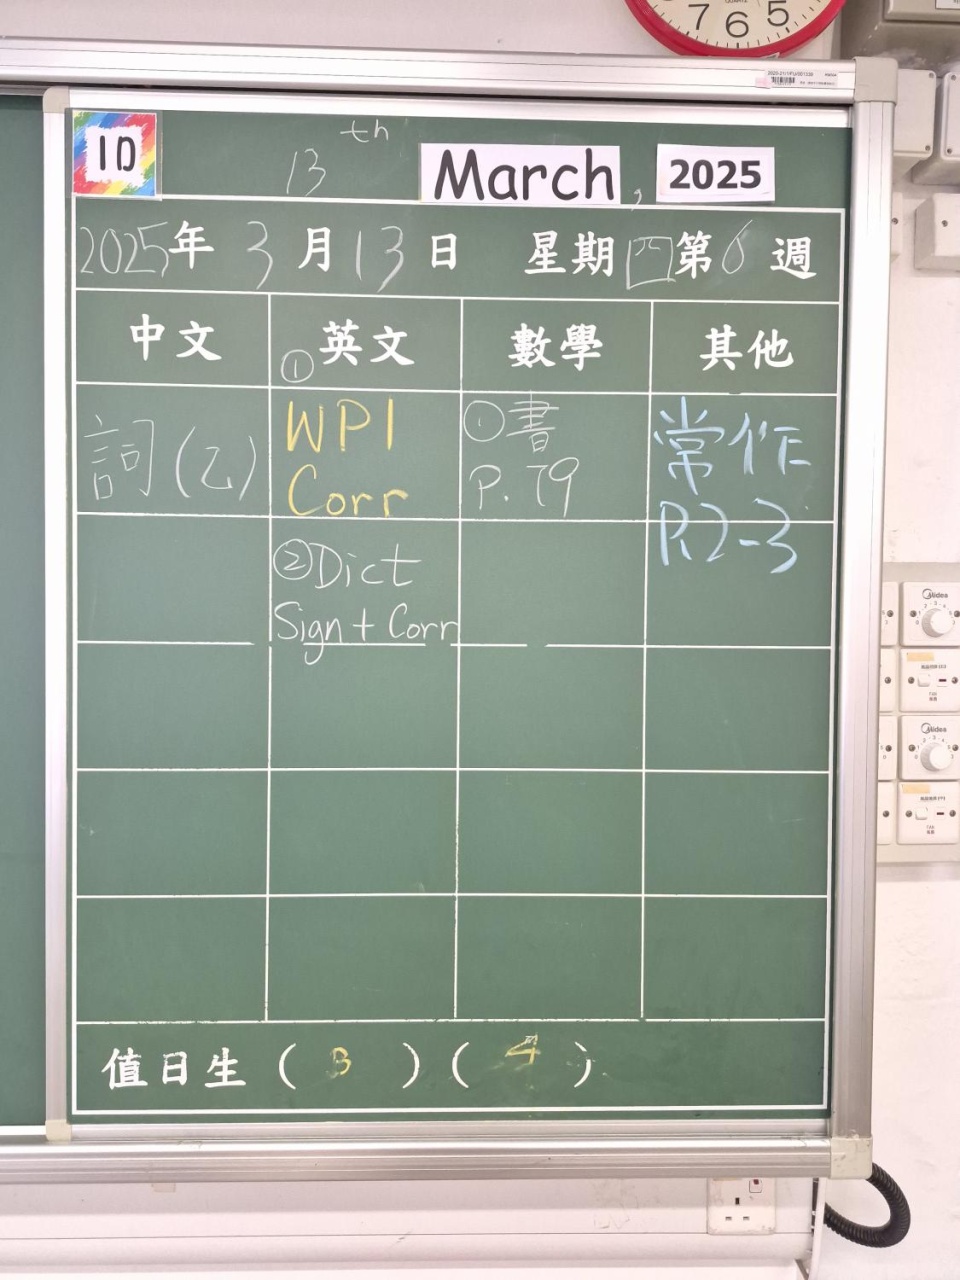 7 6 5
QUARTZ
1D
13th March, 2025
2025年3月13日 星期四第6週
中文 英文 數學 其他
詞(乙)
① WP1
Corr
② Dict
Sign + Corr
① 書
P. 79
常作
P.2-3
值日生 ( 3 ) ( 4 )
Midea
Midea